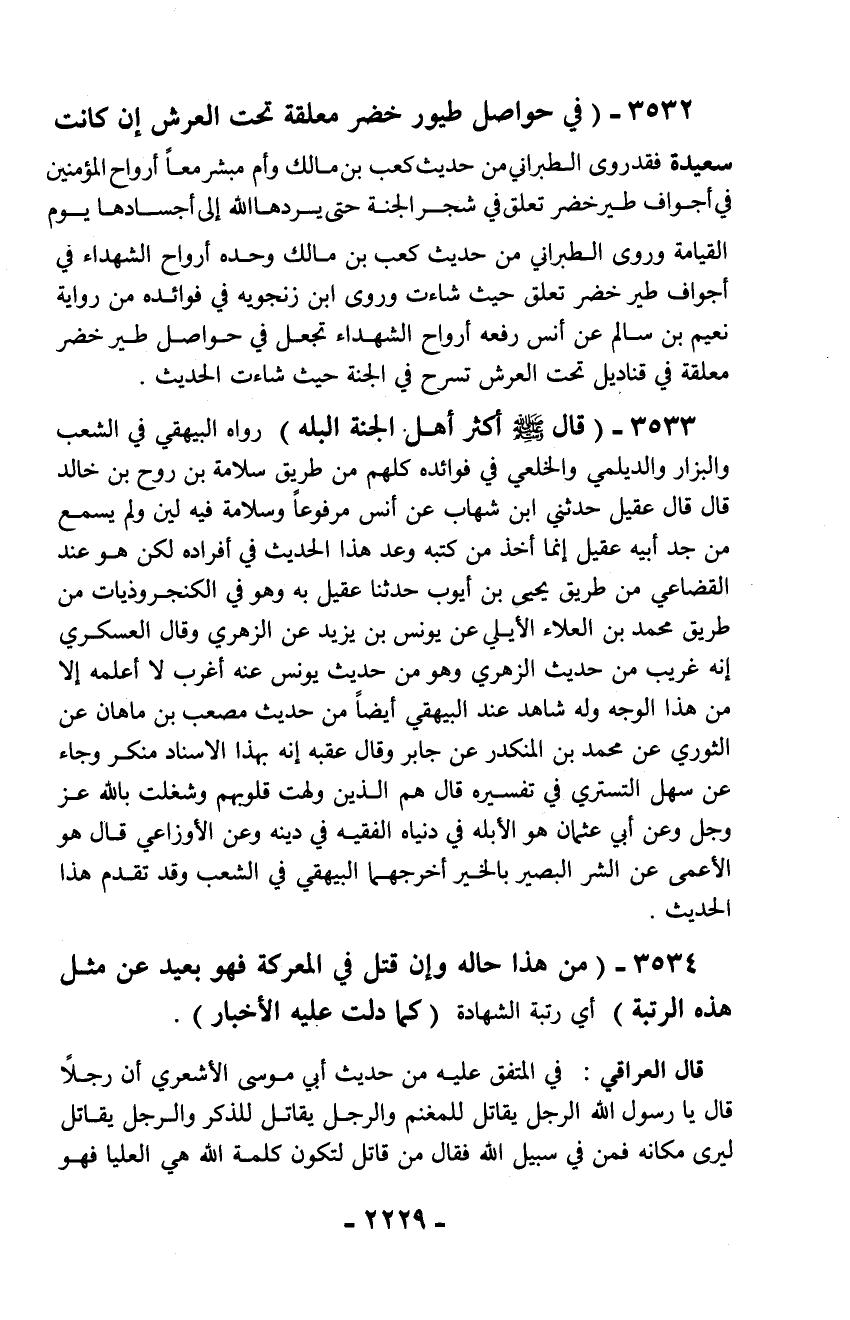 ٣٥٣٢ - ( في حواصل طيور خضر معلقة تحت العرش إن كانت
سعيدة فقدروى الطبراني من حديث كعب بن مالك وأم مبشر معاً أرواح المؤمنين
في أجواف طير خضر تعلق في شجر الجنة حتى يردها الله إلى أجسادها يوم
القيامة وروى الطبراني من حديث كعب بن مالك وحده أرواح الشهداء في
أجواف طير خضر تعلق حيث شاءت وروى ابن زنجويه في فوائده من رواية
نعيم بن سالم عن أنس رفعه أرواح الشهداء تجعل في حواصل طير خضر
معلقة في قناديل تحت العرش تسرح في الجنة حيث شاءت الحديث .
٣٥٣٣ - ( قال ﷺ أكثر أهل الجنة البله ) رواه البيهقي في الشعب
والبزار والديلمي والخلعي في فوائده كلهم من طريق سلامة بن روح بن خالد
قال قال عقيل حدثني ابن شهاب عن أنس مرفوعاً وسلامة فيه لين ولم يسمع
من جد أبيه عقيل إنما أخذ من كتبه وعد هذا الحديث في أفراده لكن هو عند
القضاعي من طريق يحيى بن أيوب حدثنا عقيل به وهو في الكنجروذيات من
طريق محمد بن العلاء الأيلي عن يونس بن يزيد عن الزهري وقال العسكري
إنه غريب من حديث الزهري وهو من حديث يونس عنه أغرب لا أعلمه إلا
من هذا الوجه وله شاهد عند البيهقي أيضاً من حديث مصعب بن ماهان عن
الثوري عن محمد بن المنكدر عن جابر وقال عقبه إنه بهذا الاسناد منكر وجاء
عن سهل التستري في تفسيره قال هم الذين ولهت قلوبهم وشغلت بالله عز
وجل وعن أبي عثمان هو الأبله في دنياه الفقيه في دينه وعن الأوزاعي قال هو
الأعمى عن الشر البصير بالخير أخرجهما البيهقي في الشعب وقد تقدم هذا
الحديث .
٣٥٣٤ - ( من هذا حاله وإن قتل في المعركة فهو بعيد عن مثل
هذه الرتبة ) أي رتبة الشهادة ( كما دلت عليه الأخبار ) .
قال العراقي : في المتفق عليه من حديث أبي موسى الأشعري أن رجلاً
قال يا رسول الله الرجل يقاتل للمغنم والرجل يقاتل للذكر والرجل يقاتل
ليرى مكانه فمن في سبيل الله فقال من قاتل لتكون كلمة الله هي العليا فهو
- ٢٢٢٩ -